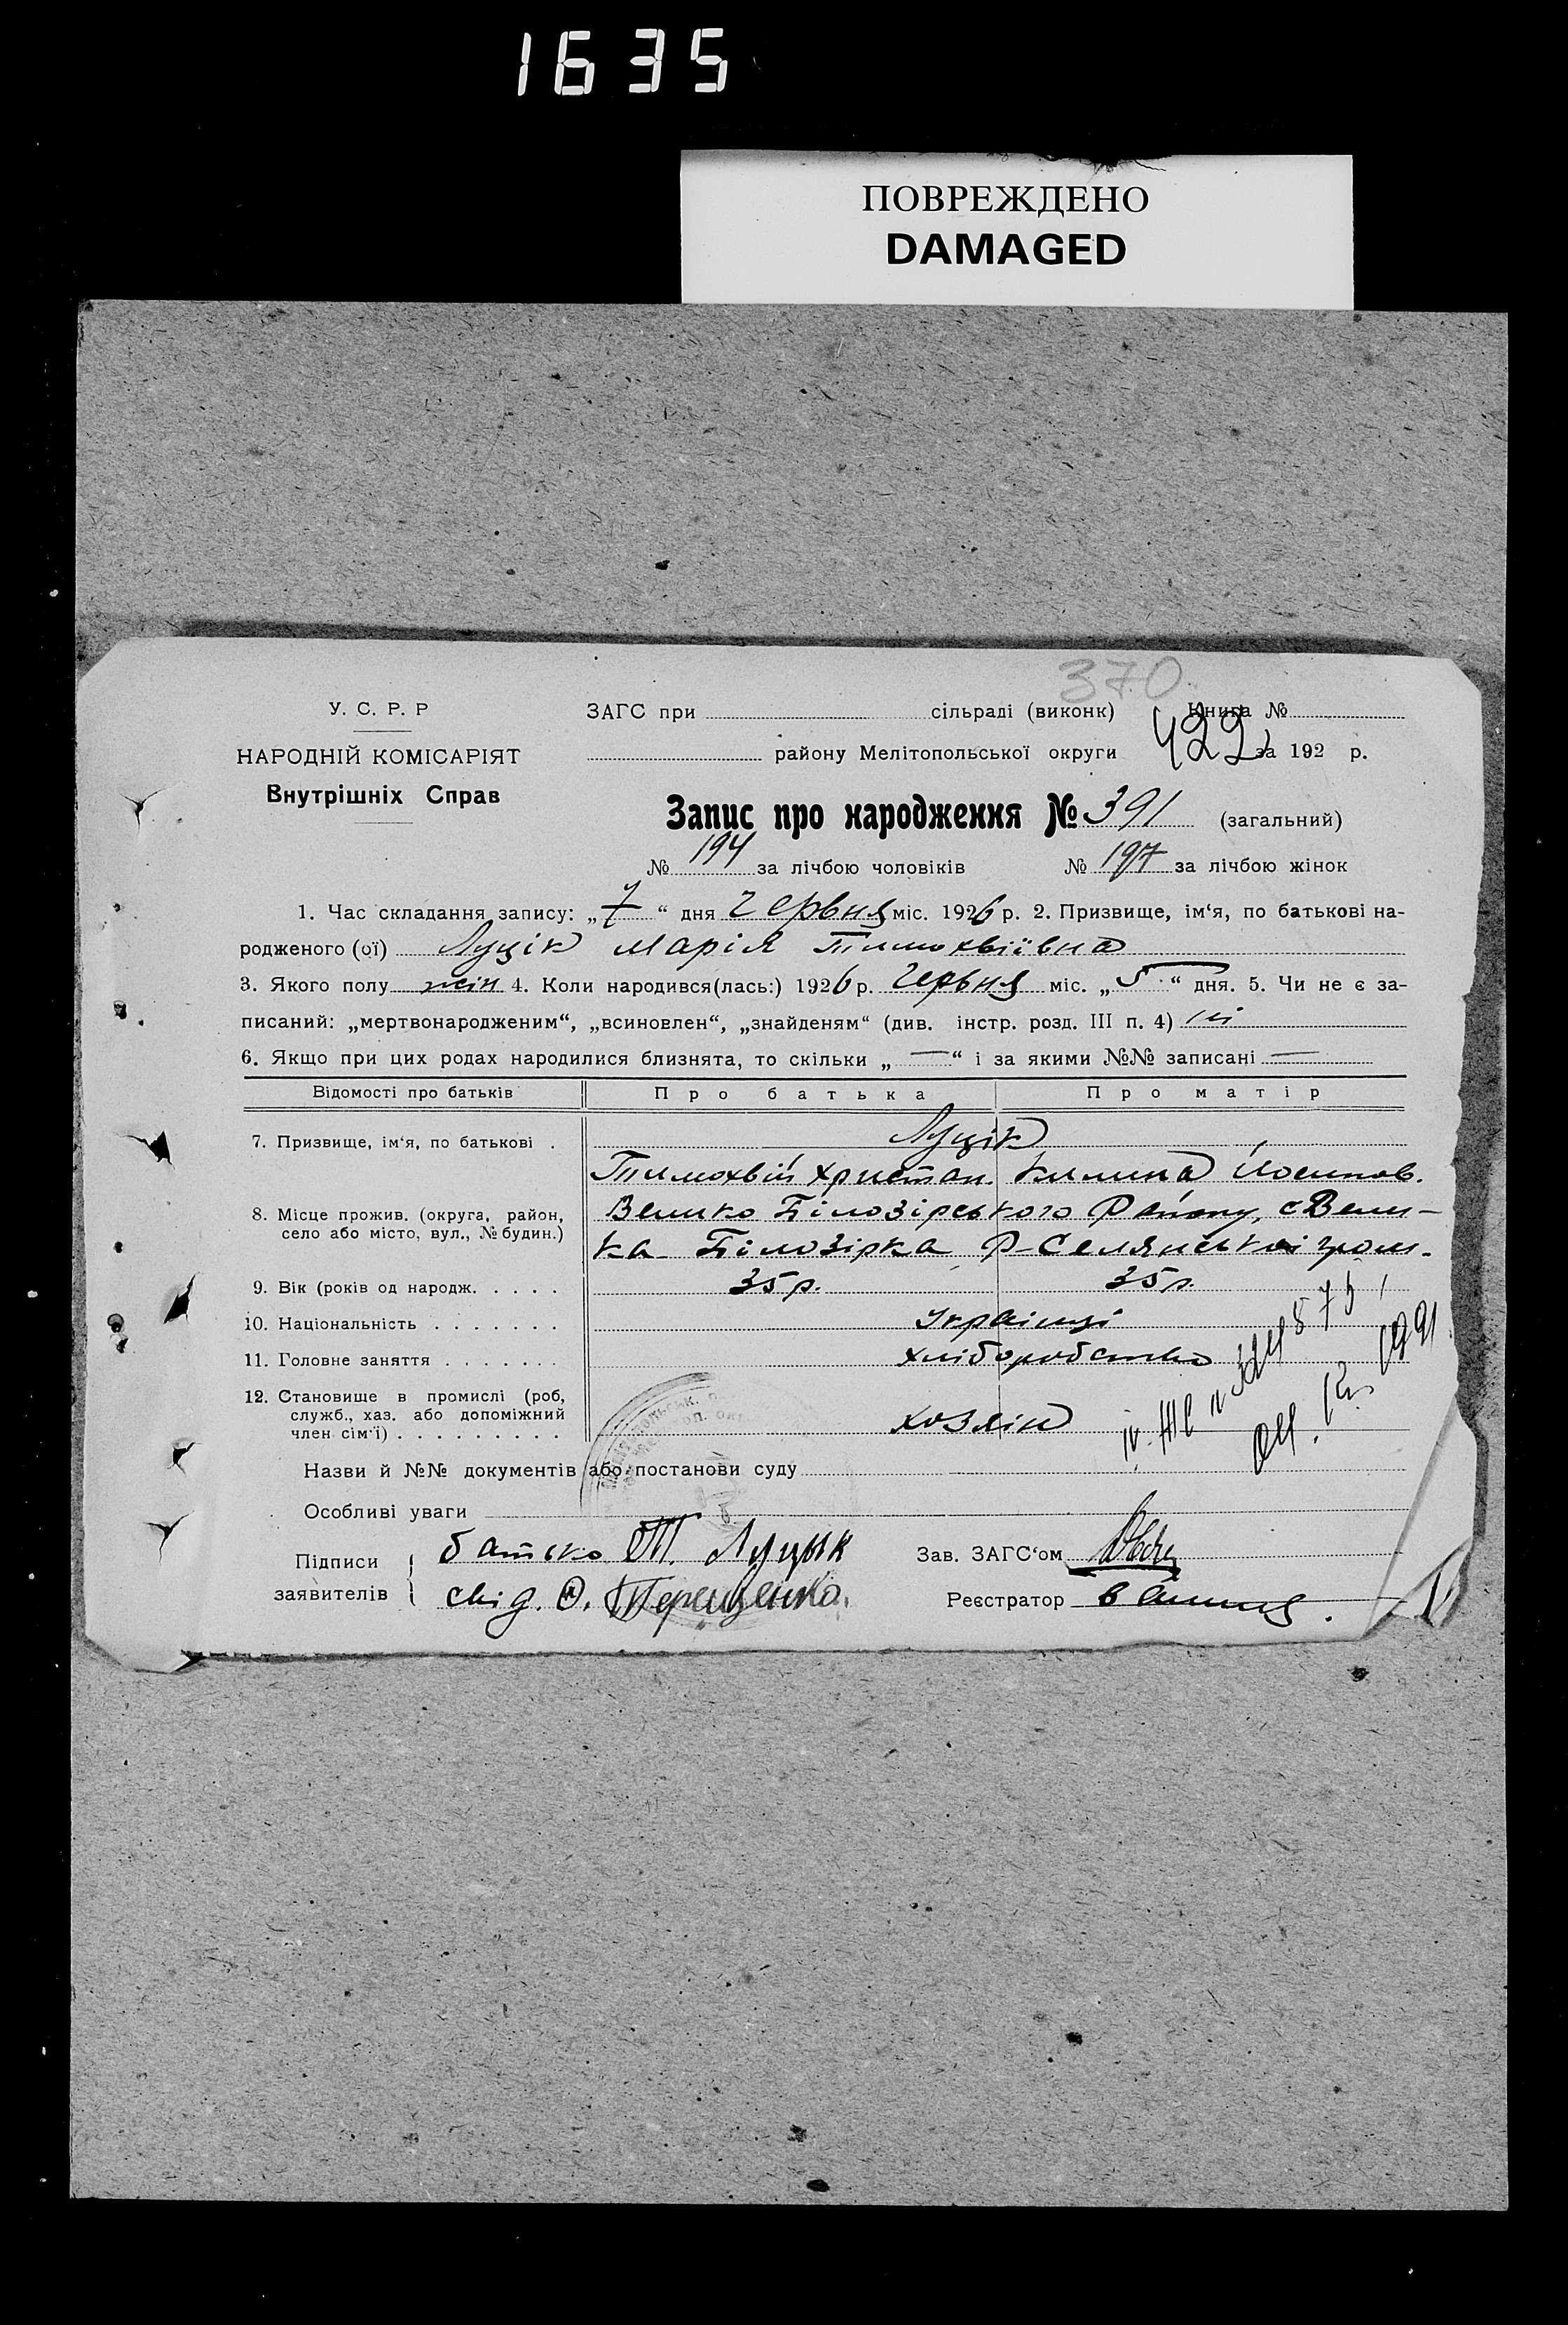 1635
ПОВРЕЖДЕНО
DAMAGED
370
У. С. Р. Р
НАРОДНІЙ КОМІСАРІЯТ
Внутрішніх Справ
ЗАГС при сільраді (виконк) Книга №
району Мелітопольської округи 422 за 192 р.
Запис про народження № 391 (загальний)
№ 194 за лічбою чоловіків № 197 за лічбою жінок
1. Час складання запису: „7“ дня Червня міс. 1926 р. 2. Призвище, ім‘я, по батькові на-
родженого (ої) Луцік Марія Тимохвіївна
3. Якого полу жін 4. Коли народився(лась:) 1926 р. Червня міс. „5“ дня. 5. Чи не є за-
писаний: „мертвонародженим“, „всиновлен“, „знайденям“ (див. інстр. розд. III п. 4) ні
6. Якщо при цих родах народилися близнята, то скільки „—“ і за якими №№ записані —
Відомості про батьків Про батька Про матір
7. Призвище, ім‘я, по батькові . Луцік
Тимохвій Христан. Килина Йосипов.
8. Місце прожив. (округа, район, село або місто, вул., № будин.) Велико Білозірського Району, с Вели-
ка Білозірка Р-Селянської гром.
9. Вік (років од народж. . . . . 35 р. 35 р.
10. Національність . . . . . . . Українці
11. Головне заняття . . . . . . . хліборобство
12. Становище в промислі (роб, служб., хаз. або допоміжний член сім‘ї) . . . . . . . . . хозяін
Назви й №№ документів або постанови суду
Особливі уваги
Підписи заявителів батько Т. Луцык
свід. Ф. Терещенко.
Зав. ЗАГС‘ом
Реєстратор